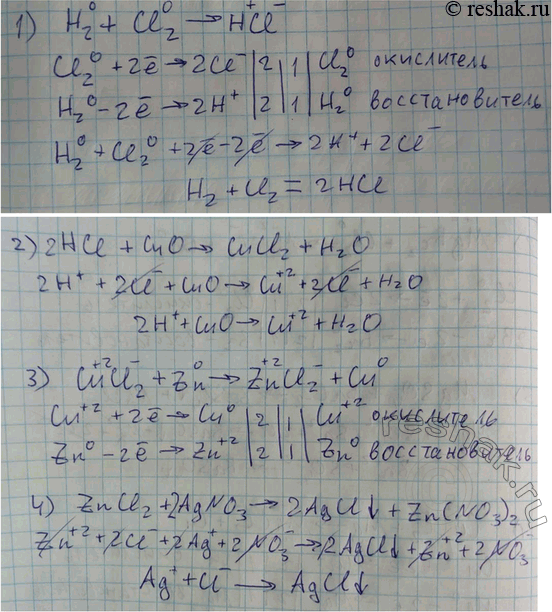 © reshak.ru
1) H₂⁰ + Cl₂⁰ → H⁺Cl⁻
Cl₂⁰ + 2ē → 2Cl⁻ | 2 | 1 | Cl₂⁰ окислитель
H₂⁰ - 2ē → 2H⁺ | 2 | 1 | H₂⁰ восстановитель
H₂⁰ + Cl₂⁰ + 2ē - 2ē → 2H⁺ + 2Cl⁻
H₂ + Cl₂ = 2HCl
2) 2HCl + CuO → CuCl₂ + H₂O
2H⁺ + 2Cl⁻ + CuO → Cu⁺² + 2Cl⁻ + H₂O
2H⁺ + CuO → Cu⁺² + H₂O
3) Cu⁺²Cl₂⁻ + Zn⁰ → Zn⁺²Cl₂⁻ + Cu⁰
Cu⁺² + 2ē → Cu⁰ | 2 | 1 | Cu⁺² окислитель
Zn⁰ - 2ē → Zn⁺² | 2 | 1 | Zn⁰ восстановитель
reshak.ru
4) ZnCl₂ + 2AgNO₃ → 2AgCl↓ + Zn(NO₃)₂
Zn⁺² + 2Cl⁻ + 2Ag⁺ + 2NO₃⁻ → 2AgCl↓ + Zn⁺² + 2NO₃⁻
Ag⁺ + Cl⁻ → AgCl↓